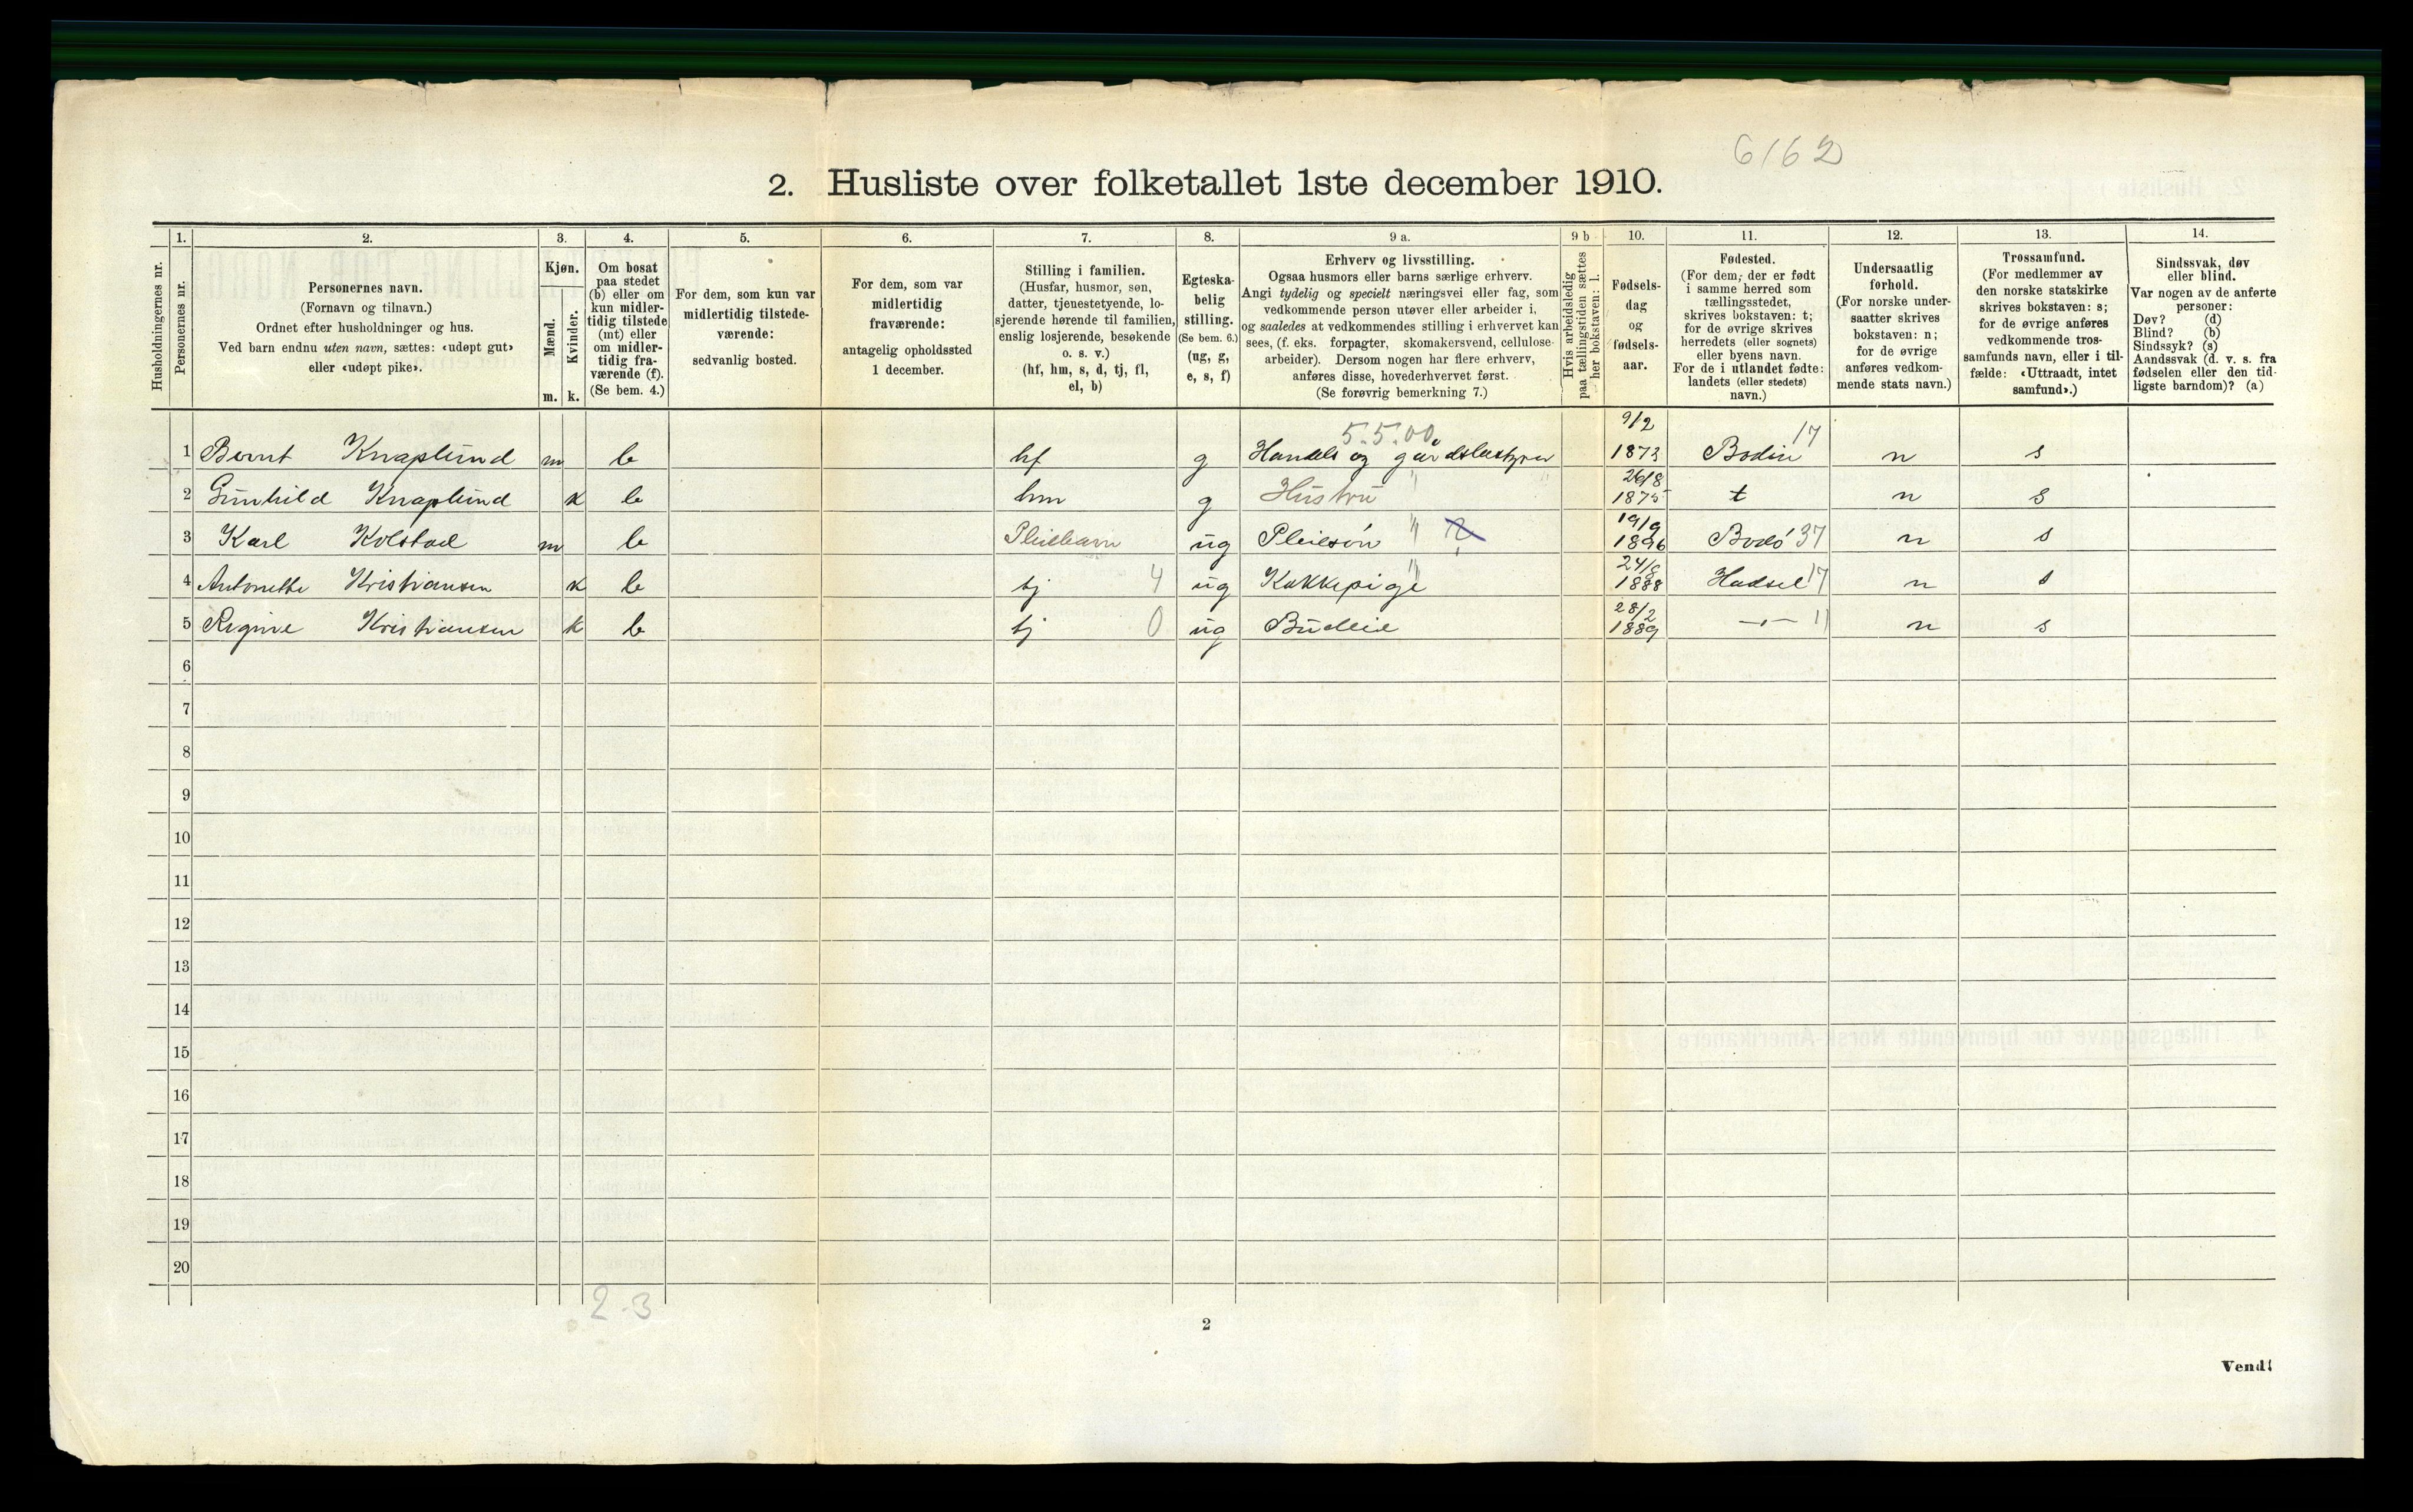 6162
2. Husliste over folketallet 1ste december 1910.
Husholdningernes nr.
1. Personernes nr.
2. Personernes navn.
(Fornavn og tilnavn.)
Ordnet efter husholdninger og hus.
Ved barn endnu uten navn, sættes: «udøpt gut»
eller «udøpt pike».
3. Kjøn.
Mænd. Kvinder.
m. k.
4. Om bosat
paa stedet
(b) eller om
kun midler-
tidig tilstede
(mt) eller
om midler-
tidig fra-
værende (f).
(Se bem. 4.)
5. For dem, som kun var
midlertidig tilstede-
værende:
sedvanlig bosted.
6. For dem, som var
midlertidig
fraværende:
antagelig opholdssted
1 december.
7. Stilling i familien.
(Husfar, husmor, søn,
datter, tjenestetyende, lo-
sjerende hørende til familien,
enslig losjerende, besøkende
o. s. v.)
(hf, hm, s, d, tj, fl,
el, b)
8. Egteska-
belig
stilling.
(Se bem. 6.)
(ug, g,
e, s, f)
9 a. Erhverv og livsstilling.
Ogsaa husmors eller barns særlige erhverv.
Angi tydelig og specielt næringsvei eller fag, som
vedkommende person utøver eller arbeider i,
og saaledes at vedkommendes stilling i erhvervet kan
sees, (f. eks. forpagter, skomakersvend, cellulose-
arbeider). Dersom nogen har flere erhverv,
anføres disse, hovederhvervet først.
(Se forøvrig bemerkning 7.)
9 b Hvis arbeidsledig
paa tællingstiden sættes
her bokstaven: l.
10. Fødsels-
dag
og
fødsels-
aar.
11. Fødested.
(For dem, der er født
i samme herred som
tællingsstedet,
skrives bokstaven: t;
for de øvrige skrives
herredets (eller sognets)
eller byens navn.
For de i utlandet fødte:
landets (eller stedets)
navn.)
12. Undersaatlig
forhold.
(For norske under-
saatter skrives
bokstaven: n;
for de øvrige
anføres vedkom-
mende stats navn.)
13. Trossamfund.
(For medlemmer av
den norske statskirke
skrives bokstaven: s;
for de øvrige anføres
vedkommende tros-
samfunds navn, eller i til-
fælde: «Uttraadt, intet
samfund».)
14. Sindssvak, døv
eller blind.
Var nogen av de anførte
personer:
Døv? (d)
Blind? (b)
Sindssyk? (s)
Aandssvak (d. v. s. fra
fødselen eller den tid-
ligste barndom)? (a)
5.5.00 9/2 17
1 Bernt Knaplund m b hf g Handels og gårdsbestyrer 1873 Bodin n s
26/8
2 Gunhild Knaplund k b hm g Hustru " 1875 t n s
19/9
3 Karl Kolstad m b Pleiebarn ug Pleiesøn " 1896 Bodø 37 n s
24/8
4 Antonette Kristiansen k b tj 4 ug Kokkepige " 1888 Hadsel 17 n s
28/2
5 Regine Kristiansen k b tj 0 ug Budeie 1889 —"— 11 n s
6
7
8
9
10
11
12
13
14
15
16
17
18
19
20
2 - 3
2
Vend!